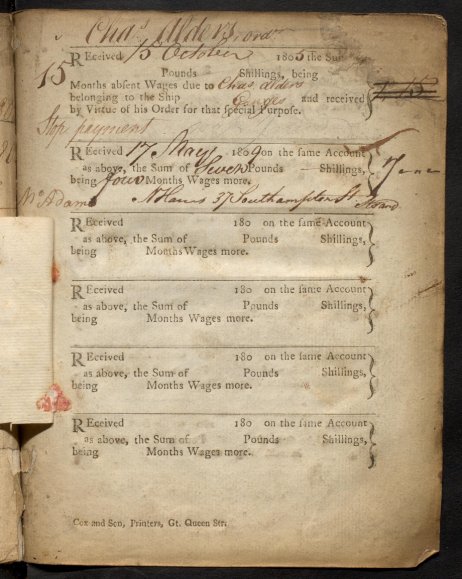 Chas Alders order
REceived 15 October 1805 the Sum
15 Pounds Shillings, being
Months absent Wages due to Chas Alders
belonging to the Ship Ganges and received
by Virtue of his Order for that special Purpose.
Stop payment
REceived 17 May 1809 on the same Account
as above, the Sum of Seven Pounds Shillings, 7
being four Months Wages more.
Wm Adams 37 Southampton St Strand
REceived 180 on the same Account
as above, the Sum of Pounds Shillings,
being Months Wages more.
REceived 180 on the same Account
as above, the Sum of Pounds Shillings,
being Months Wages more.
REceived 180 on the same Account
as above, the Sum of Pounds Shillings,
being Months Wages more.
REceived 180 on the same Account
as above, the Sum of Pounds Shillings,
being Months Wages more.
Cox and Son, Printers, Gt. Queen Str.